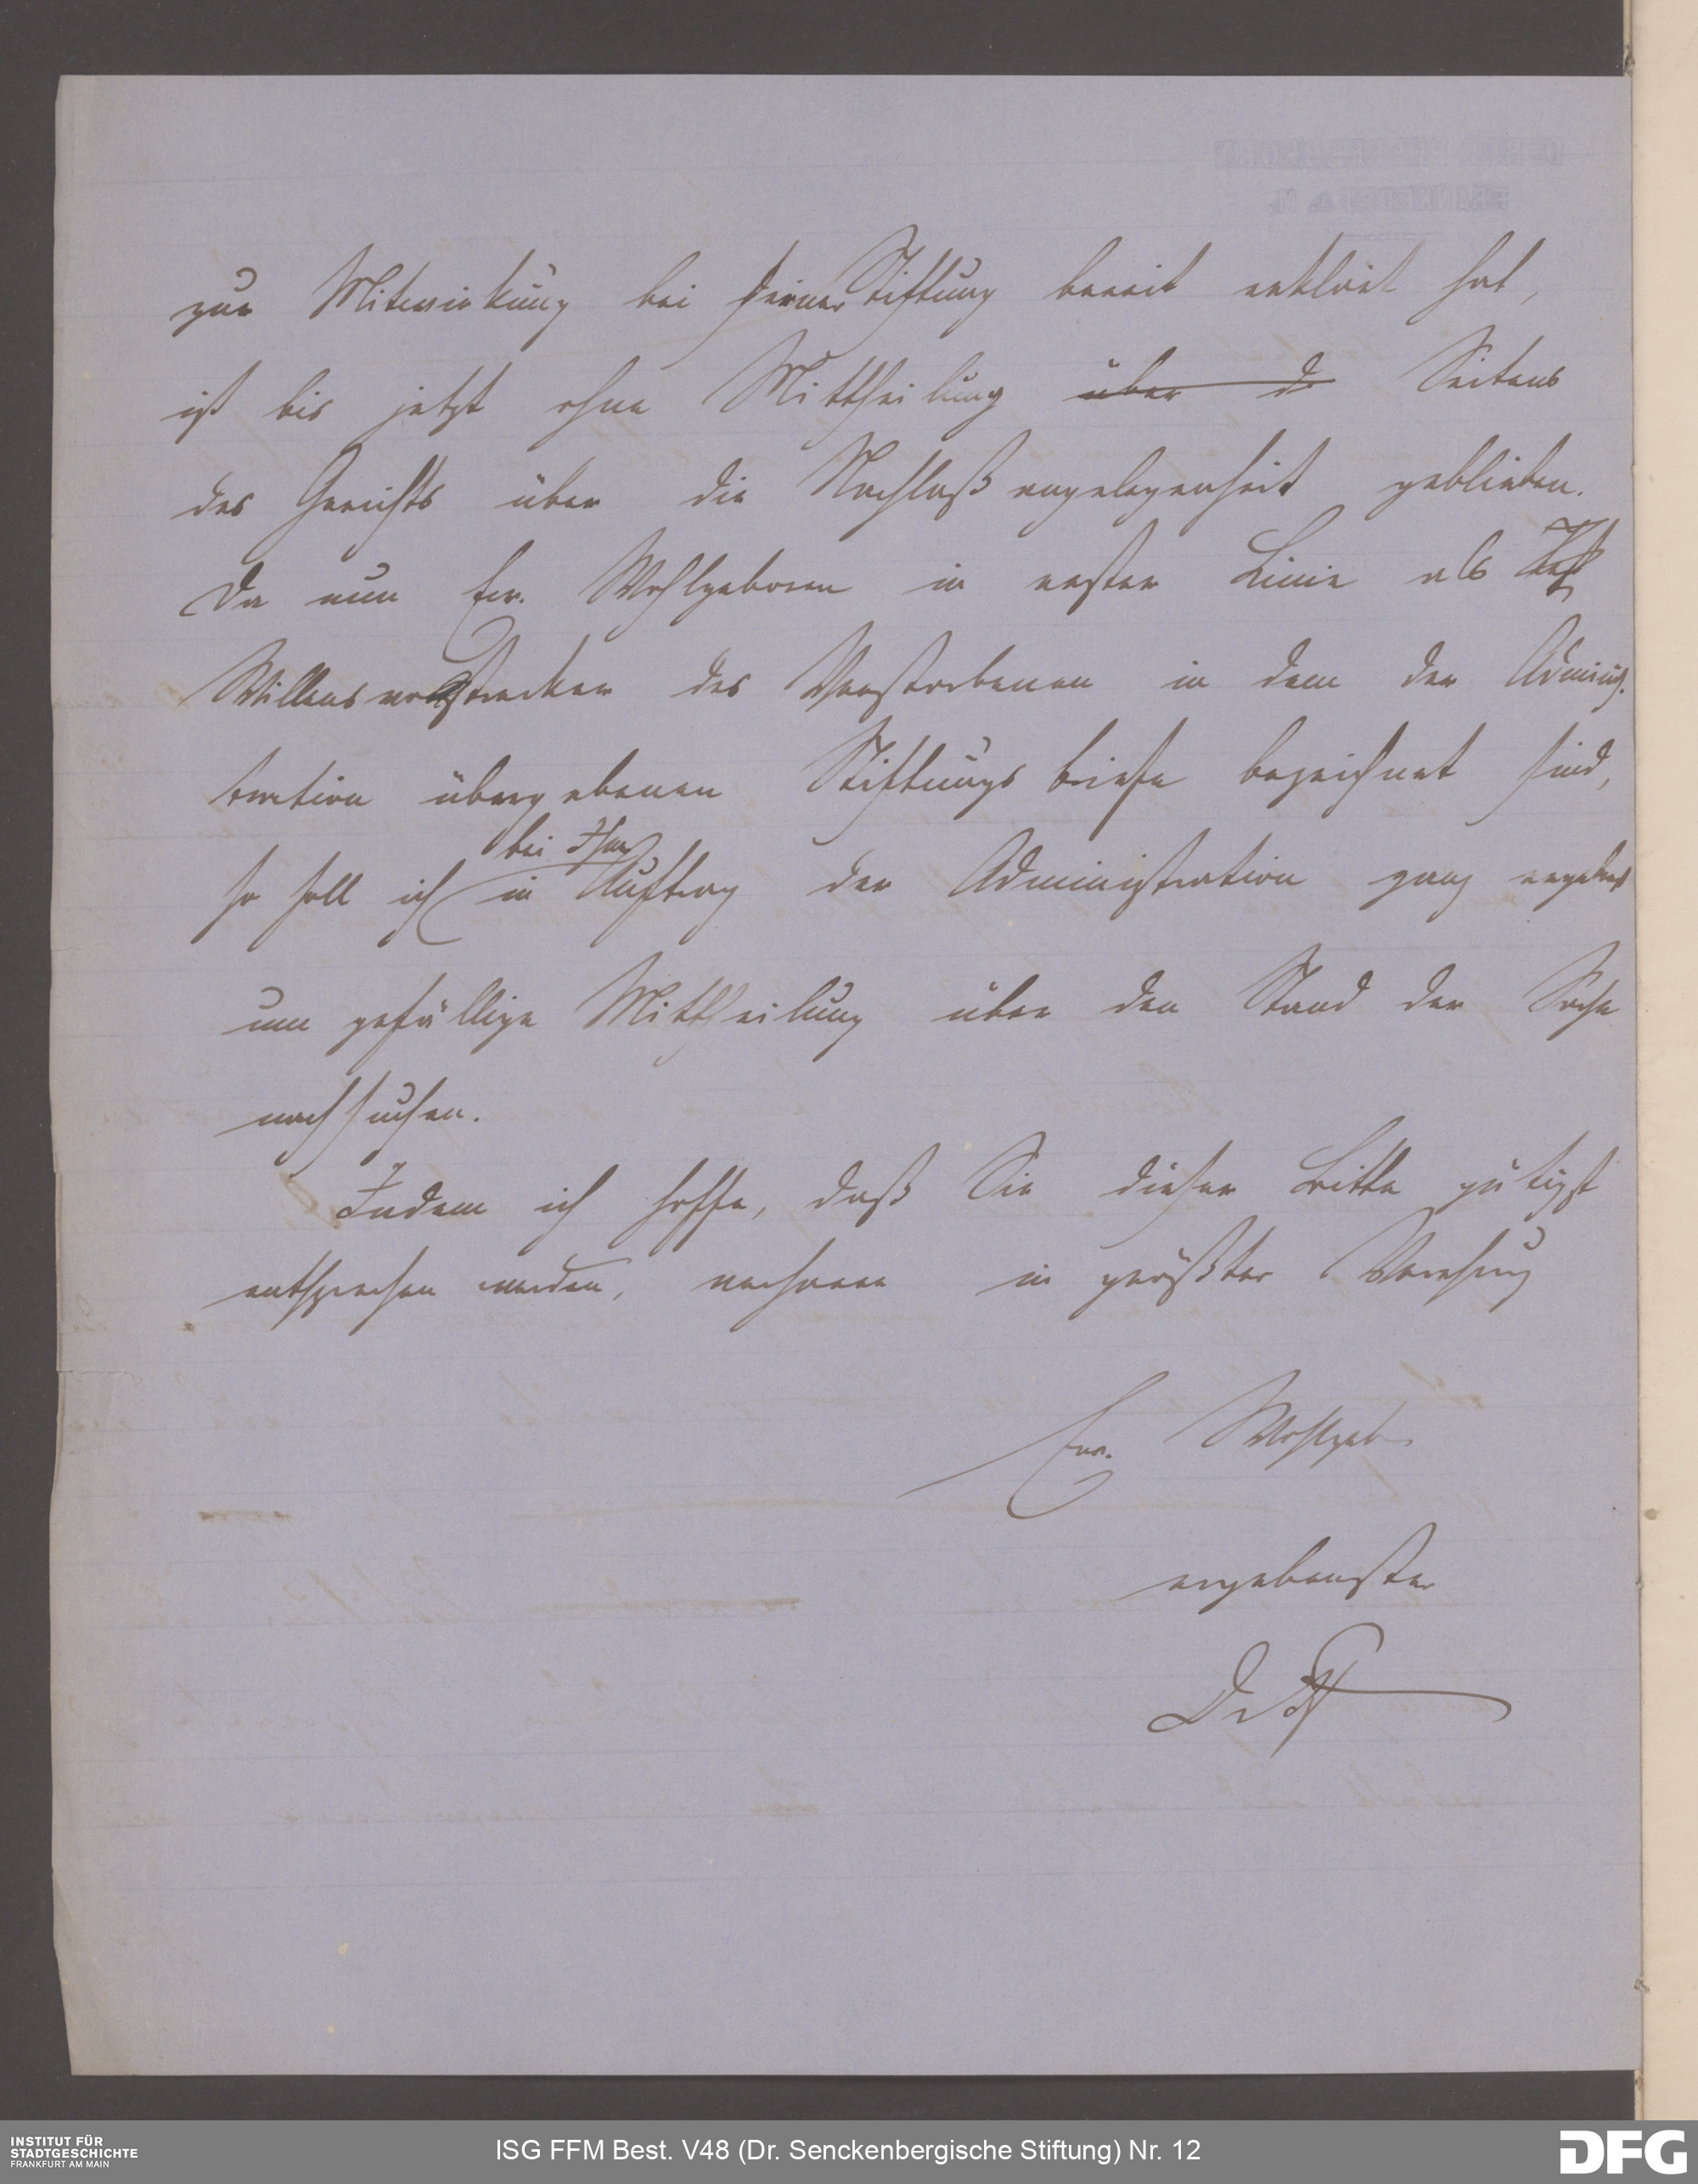 zur Mitwirkung bei seiner Stiftung bereit erklärt hat,
ist bis jetzt ohne Mittheilung über d Seitens
des Gerichts über die Nachlaßangelegenheit geblieben.
Da nun Ew. Wohlgeboren in erster Linie als Test
Willensvollstrecker des Verstorbenen in dem der Adminis-
tration übergebenen Stiftungsbriefe bezeichnet sind,
bei Ihnen
so soll ich in Auftrag der Administration ganz ergebenst
um gefällige Mittheilung über den Stand der Sache
nachsuchen.
Indem ich hoffe, daß Sie dieser Bitte gütigst
entsprechen werden, verharre in größter Verehrung
Ew. Wohlgeb.
ergebenster
Dr
INSTITUT FÜR
STADTGESCHICHTE
FRANKFURT AM MAIN
ISG FFM Best. V48 (Dr. Senckenbergische Stiftung) Nr. 12
DFG